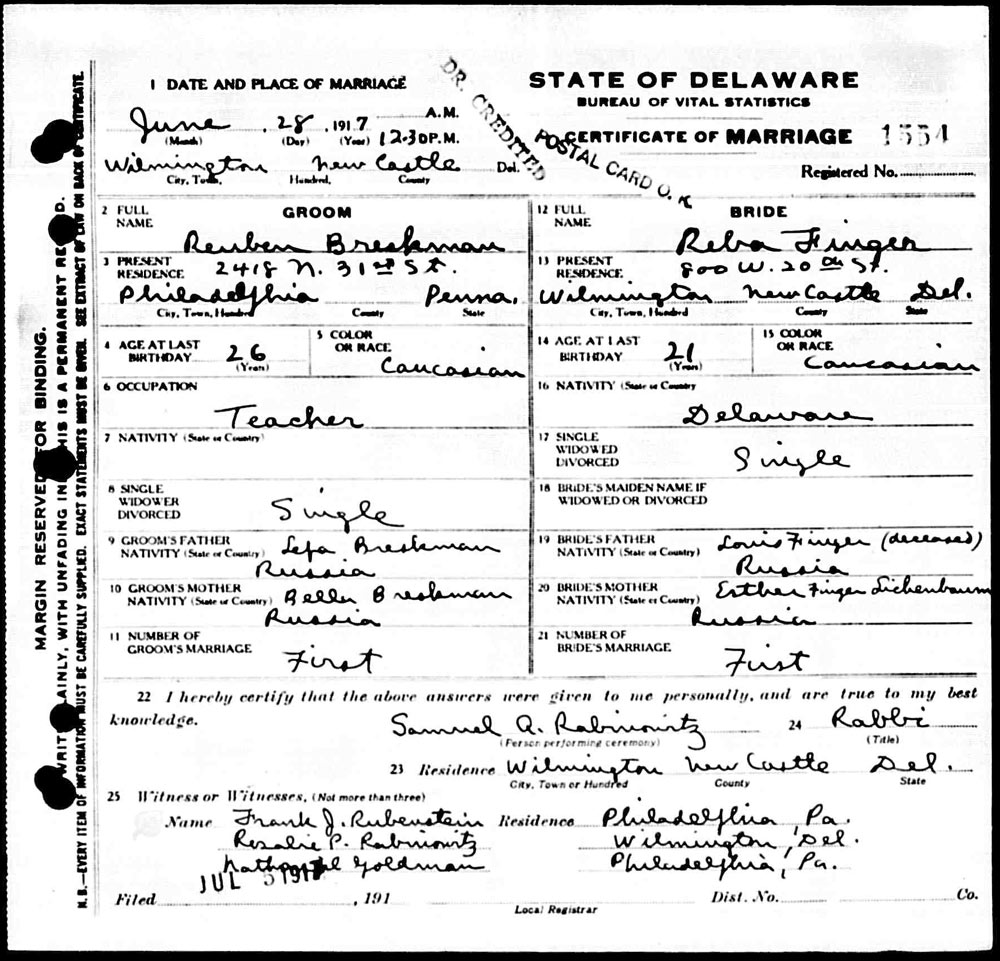 MARGIN RESERVED FOR BINDING.
WRITE PLAINLY, WITH UNFADING INK THIS IS A PERMANENT RECORD.
N.B.—EVERY ITEM OF INFORMATION MUST BE CAREFULLY SUPPLIED. EXACT STATEMENTS MUST BE GIVEN. SEE EXTRACT OF LAW ON BACK OF CERTIFICATE.
1 DATE AND PLACE OF MARRIAGE
June 28, 1917 A.M.
(Month) (Day) (Year) 12-30 P.M.
Wilmington New Castle Del.
City, Town, Hundred, County
DR. CREDITED
POSTAL CARD O. K
STATE OF DELAWARE
BUREAU OF VITAL STATISTICS
CERTIFICATE OF MARRIAGE 1554
Registered No.
2 FULL NAME GROOM
Reuben Breskman
3 PRESENT RESIDENCE 2418 N. 31st St.
Philadelphia Penna.
City, Town, Hundred County State
4 AGE AT LAST BIRTHDAY 26 (Years)
5 COLOR OR RACE Caucasian
6 OCCUPATION
Teacher
7 NATIVITY (State or Country)
8 SINGLE WIDOWER DIVORCED Single
9 GROOM'S FATHER Lepa Breskman
NATIVITY (State or Country) Russia
10 GROOM'S MOTHER Bella Breskman
NATIVITY (State or Country) Russia
11 NUMBER OF GROOM'S MARRIAGE First
12 FULL NAME BRIDE
Reba Finger
13 PRESENT RESIDENCE 800 W. 20th St.
Wilmington New Castle Del.
City, Town, Hundred County State
14 AGE AT LAST BIRTHDAY 21 (Years)
15 COLOR OR RACE Caucasian
16 NATIVITY (State or Country
Delaware
17 SINGLE WIDOWED DIVORCED Single
18 BRIDE'S MAIDEN NAME IF WIDOWED OR DIVORCED
19 BRIDE'S FATHER Louis Finger (deceased)
NATIVITY (State or Country) Russia
20 BRIDE'S MOTHER Esther Finger Lichenbaum
NATIVITY (State or Country) Russia
21 NUMBER OF BRIDE'S MARRIAGE First
22 I hereby certify that the above answers were given to me personally, and are true to my best
knowledge. Samuel A. Rabinowitz 24 Rabbi
(Person performing ceremony) (Title)
23 Residence Wilmington New Castle Del.
City, Town or Hundred County State
25 Witness or Witnesses, (Not more than three)
Name Frank J. Rubenstein Residence Philadelphia, Pa.
Rosalie P. Rabinowitz Wilmington, Del.
Nathaniel Goldman Philadelphia, Pa.
JUL 5 1917
Filed , 191 Dist. No. Co.
Local Registrar